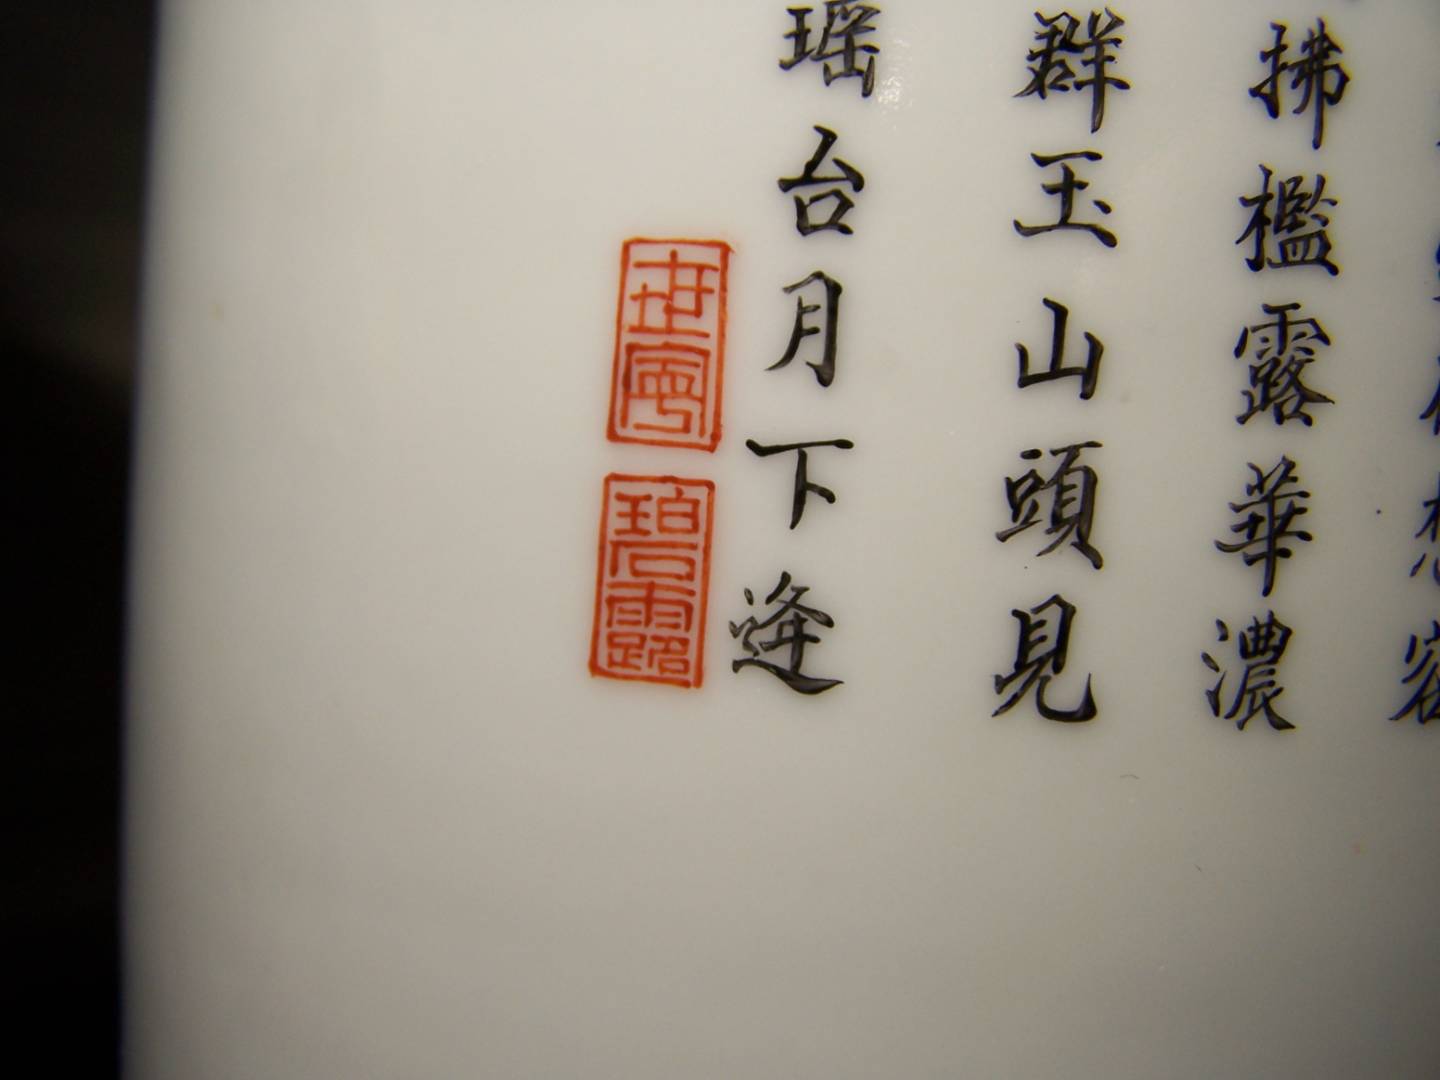 想容
拂檻露華濃
群玉山頭見
瑶台月下逢
碧露